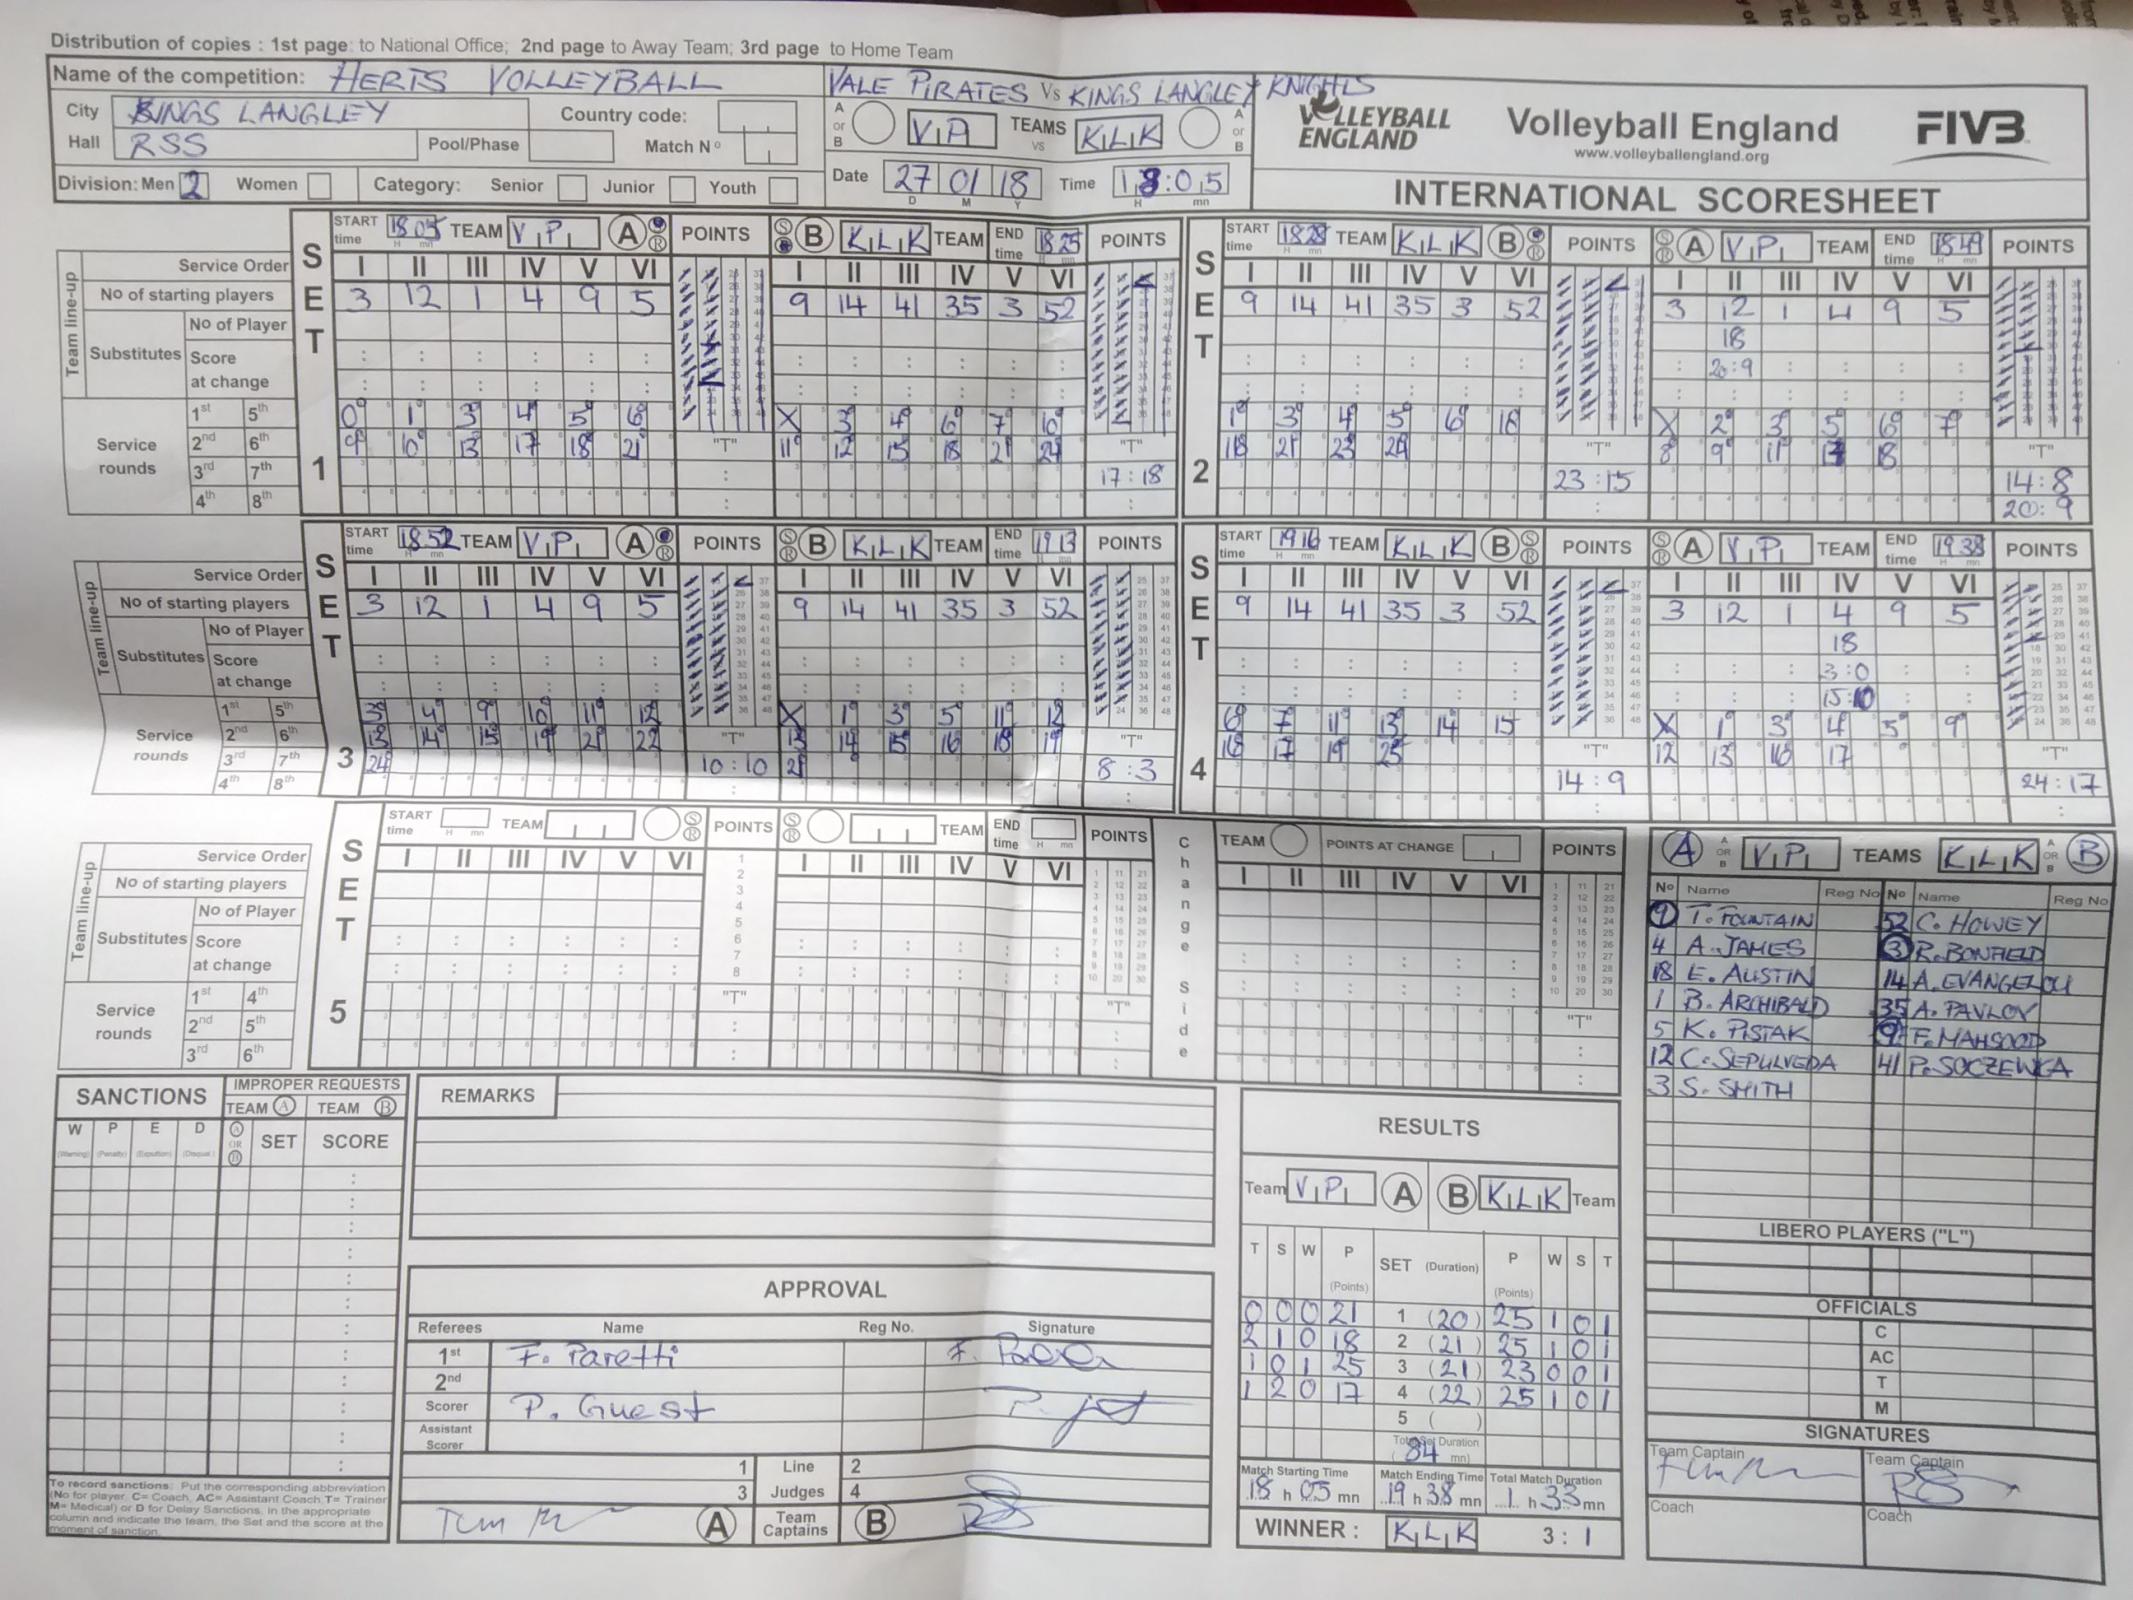 Distribution of copies : 1st page: to National Office; 2nd page to Away Team; 3rd page to Home Team
Name of the competition: HERTS VOLLEYBALL
VALE PIRATES Vs KINGS LANGLEY KNIGHTS
City KINGS LANGLEY Country code:
Hall RSS Pool/Phase Match Nº
Division: Men 2 Women Category: Senior Junior Youth
A or B VP TEAMS vs KLK A or B
Date 27 01 18 Time 18:05
D M Y H mn
VOLLEYBALL ENGLAND
Volleyball England
www.volleyballengland.org
FIVB
INTERNATIONAL SCORESHEET
SET 1
START time 18 05 TEAM VP A S R POINTS S R B KLK TEAM END time 18 25 POINTS
Service Order I II III IV V VI I II III IV V VI
No of starting players 3 12 1 4 9 5 9 14 41 35 3 52
Team line-up
Substitutes No of Player
Score at change
Service rounds
1st 5th 0 1 3 4 5 6 X 3 4 6 7 10
2nd 6th 9 10 13 17 18 21 11 12 15 18 21 24
3rd 7th
4th 8th
"T" "T" 17:18
SET 2
START time 18 28 TEAM KLK B S R POINTS S R A VP TEAM END time 18 49 POINTS
I II III IV V VI I II III IV V VI
9 14 41 35 3 52 3 12 1 4 9 5
18
20:9
1 3 4 5 6 16 X 2 3 5 6 7
18 21 23 24 8 9 11 18
"T" 23:15 "T" 14:8
20:9
SET 3
START time 18 52 TEAM VP A S R POINTS S R B KLK TEAM END time 19 13 POINTS
Service Order I II III IV V VI I II III IV V VI
No of starting players 3 12 1 4 9 5 9 14 41 35 3 52
Team line-up
Substitutes No of Player
Score at change
Service rounds
1st 5th 3 4 9 10 11 12 X 1 3 5 11 12
2nd 6th 13 14 15 19 21 22 13 14 15 16 18 19
3rd 7th 24 21
4th 8th
"T" 10:10 "T" 8:3
SET 4
START time 19 16 TEAM KLK B S R POINTS S R A VP TEAM END time 19 38 POINTS
I II III IV V VI I II III IV V VI
9 14 41 35 3 52 3 12 1 4 9 5
18
3:0
15:10
6 7 11 13 14 15 X 1 3 4 5 9
16 17 19 25 12 13 16 17
"T" 14:9 "T" 24:17
SET 5
START time TEAM S R POINTS S R TEAM END time POINTS
Change Side
TEAM POINTS AT CHANGE POINTS
Service Order I II III IV V VI I II III IV V VI I II III IV V VI
No of starting players
Team line-up
Substitutes No of Player
Score at change
Service rounds
1st 4th
2nd 5th
3rd 6th
"T" "T" "T"
A A OR B VP TEAMS KLK A OR B B
Nº Name Reg No Nº Name Reg No
9 T. FOUNTAIN 52 C. HOWEY
4 A. JAMES 3 R. BONFIELD
18 E. AUSTIN 14 A. EVANGELOU
1 B. ARCHIBALD 35 A. PAVLOV
5 K. PISTAK 9 F. MAHSOOD
12 C. SEPULVEDA 41 P. SOCZEWKA
3 S. SMITH
LIBERO PLAYERS ("L")
OFFICIALS
C
AC
T
M
SIGNATURES
Team Captain Team Captain
Coach Coach
SANCTIONS IMPROPER REQUESTS
TEAM A TEAM B
W P E D A OR B SET SCORE
(Warning) (Penalty) (Expultion) (Disqual.)
To record sanctions: Put the corresponding abbreviation
(No for player, C= Coach, AC= Assistant Coach, T= Trainer
M= Medical) or D for Delay Sanctions, in the appropriate
column and indicate the team, the Set and the score at the
moment of sanction.
REMARKS
APPROVAL
Referees Name Reg No. Signature
1st F. Paretti
2nd
Scorer P. Guest
Assistant Scorer
1 Line 2
3 Judges 4
A Team Captains B
RESULTS
Team VP A B KLK Team
T S W P SET (Duration) P W S T
(Points) (Points)
0 0 0 21 1 (20) 25 1 0 1
2 1 0 18 2 (21) 25 1 0 1
1 0 1 25 3 (21) 23 0 0 1
1 2 0 17 4 (22) 25 1 0 1
5 ( )
Total Set Duration
(84 mn)
Match Starting Time Match Ending Time Total Match Duration
18 h 05 mn 19 h 38 mn 1 h 33 mn
WINNER : KLK 3 : 1